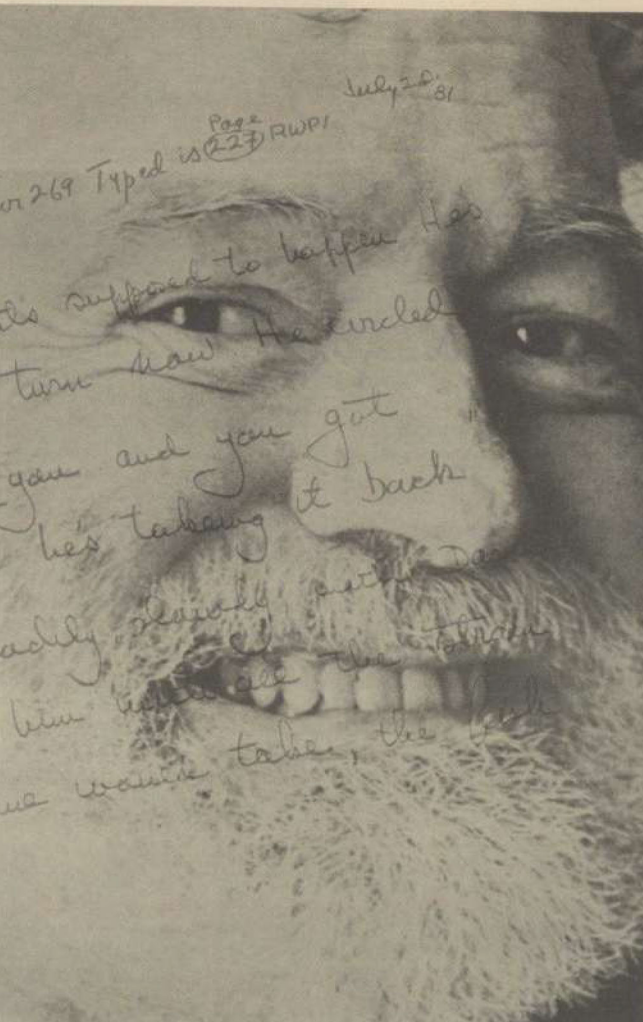 July 20. 81
Page
or 269 Typed is 227 RWP1
its supposed to happen Hes
turn now He circled
you and you got
he's takeing it back
slowly
him all the
would take, the